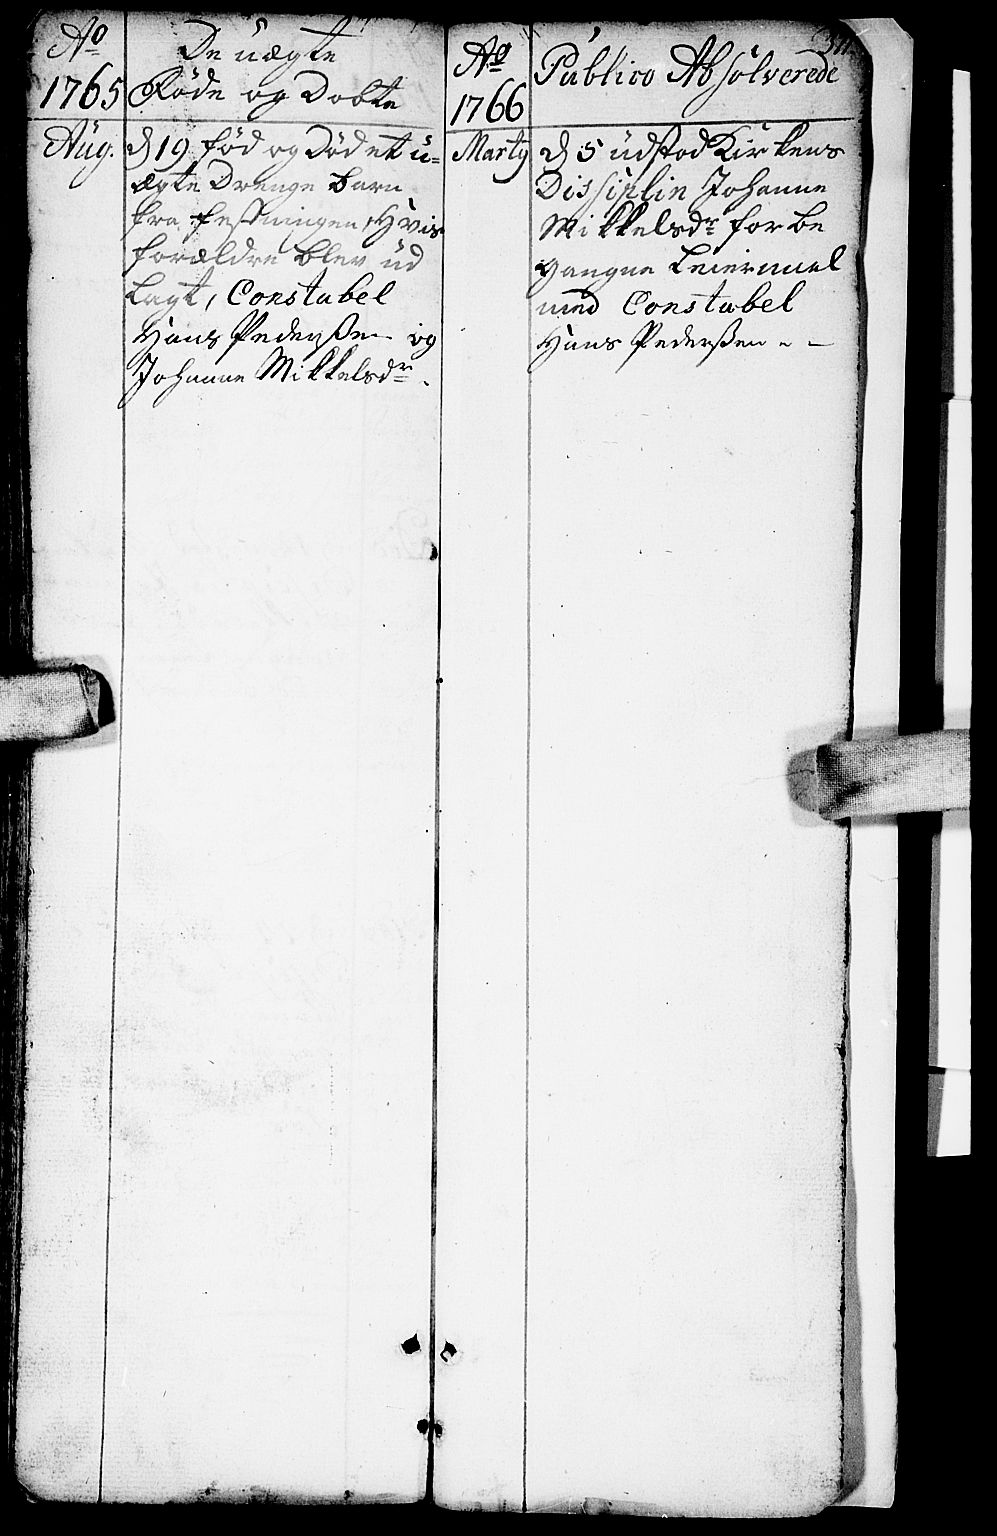 Ao
1765
De uægte
Föde og Dobte
Aug.
d 19 fød og Död et u-
ægte Drenge Barn
fra festningen, Hvis
forældre blev ud
lagt, Constabel
Hans Pederßen og
Johanne Mikkelsdr.
Ao
1766
Publico Absolverede
Martÿ
d 5 udstod Kirkens
Dissiplin Johanne
Mikkelsdr for be
gangne Leiermael
med Constabel
Hans Pederßen - -